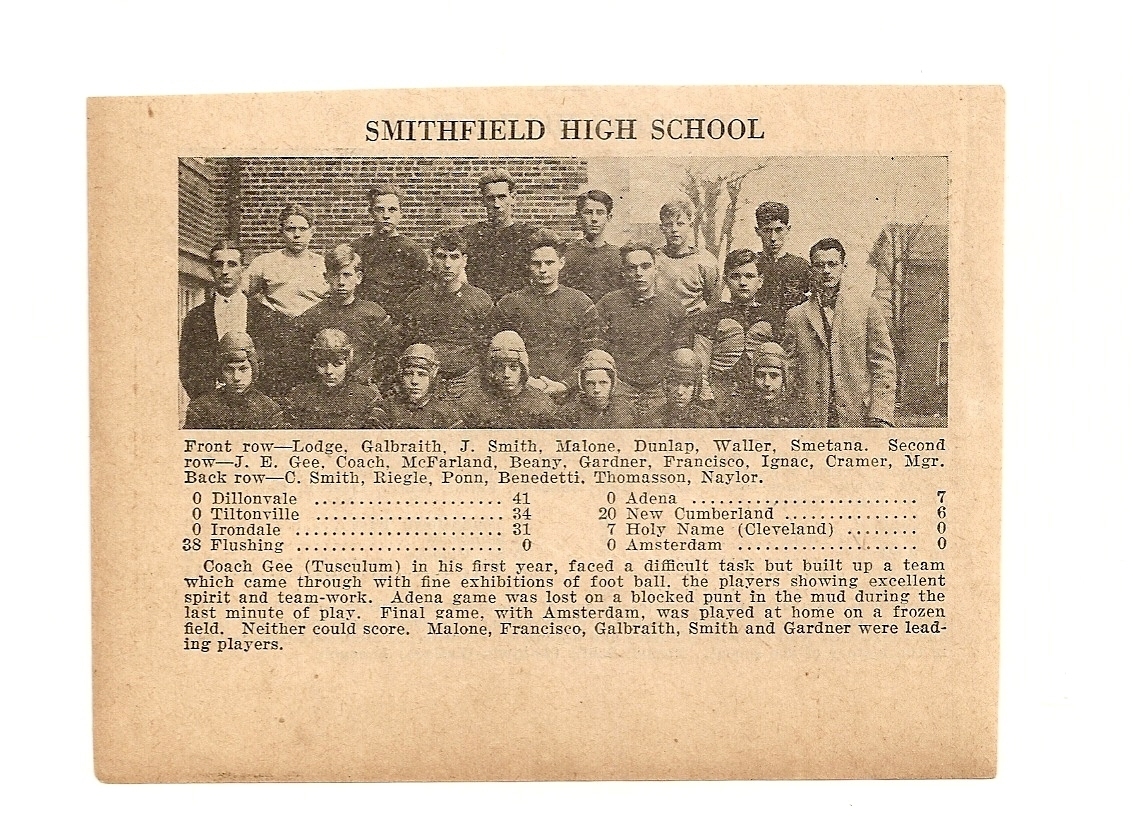 SMITHFIELD HIGH SCHOOL
Front row—Lodge, Galbraith, J. Smith, Malone, Dunlap, Waller, Smetana. Second
row—J. E. Gee, Coach, McFarland, Beany, Gardner, Francisco, Ignac, Cramer, Mgr.
Back row—C. Smith, Riegle, Ponn, Benedetti, Thomasson, Naylor.
0 Dillonvale ........................ 41 0 Adena ............................ 7
0 Tiltonville ........................ 34 20 New Cumberland ................ 6
0 Irondale .......................... 31 7 Holy Name (Cleveland) ......... 0
38 Flushing .......................... 0 0 Amsterdam ...................... 0
Coach Gee (Tusculum) in his first year, faced a difficult task but built up a team
which came through with fine exhibitions of foot ball, the players showing excellent
spirit and team-work. Adena game was lost on a blocked punt in the mud during the
last minute of play. Final game, with Amsterdam, was played at home on a frozen
field. Neither could score. Malone, Francisco, Galbraith, Smith and Gardner were lead-
ing players.